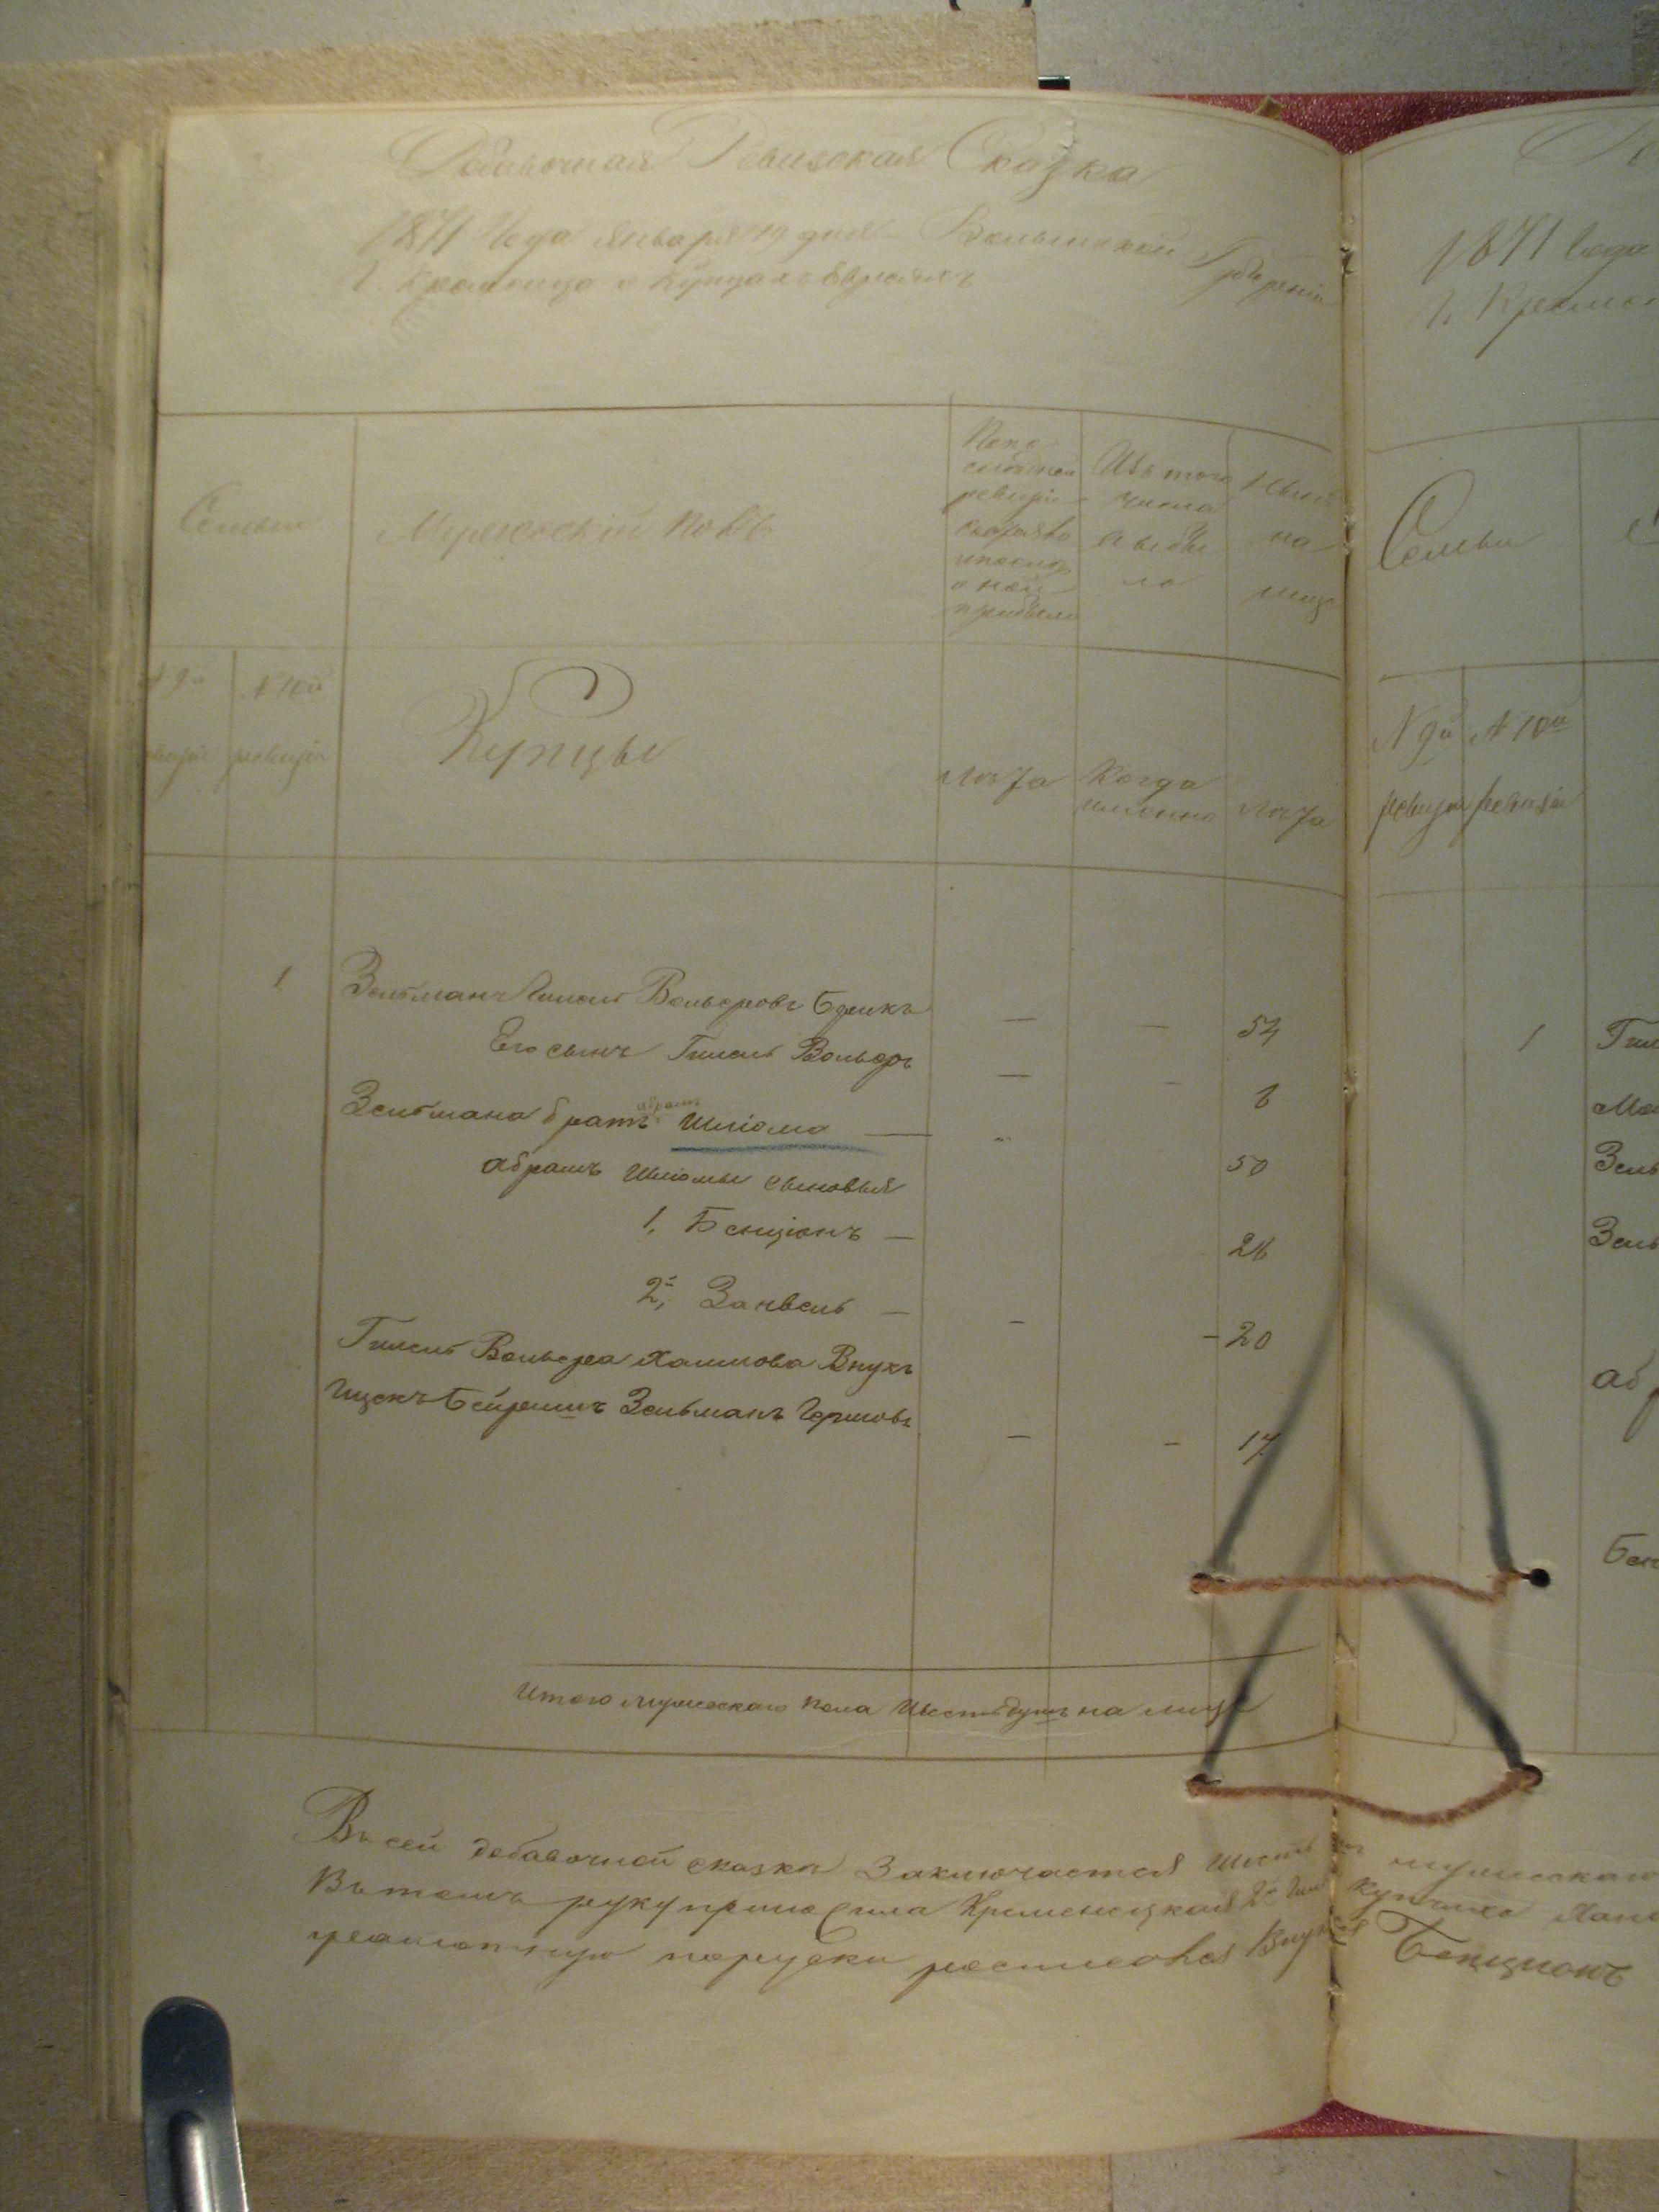 Добавочная Ревизская Сказка
1871 Года Января 19 дня Волынской Губерніи
Г. Кременца о Купцахъ Евреяхъ
Семьи
Мужескій полъ
По по
следней
ревизіи
состояло
и после
оной
прибыло
Изъ того
числа
выбы
ло
Ныне
на
лицо
№ 9й
ревизіи
№ 10й
ревизіи
Купцы
Лета
Когда
именно
Лета
1
Зельманъ Вольфовъ
54
Его сынъ Гилель Вольфъ
Зельмана братъ Абрамъ Шліома —
50
Абрамъ Шліомы сыновья
1, Бенціонъ —
2, Занвель —
20
Гилель Вольфа Хаимова Внукъ
Ицекъ Бейришъ Зельманъ Гершовъ
17
Итого мужескаго пола шесть душъ на лицо
Въ сей добавочной сказке Заключается шесть мужескаго
Въ томъ руку приложила Кременецкая 2й Купчиха
росписался Внукъ Бенционъ
1871 Года
Г. Кремен
Семьи
№ 9й
ревизіи
№ 10й
ревизіи
1
Гил
Зель
Зель
Аб
Бен